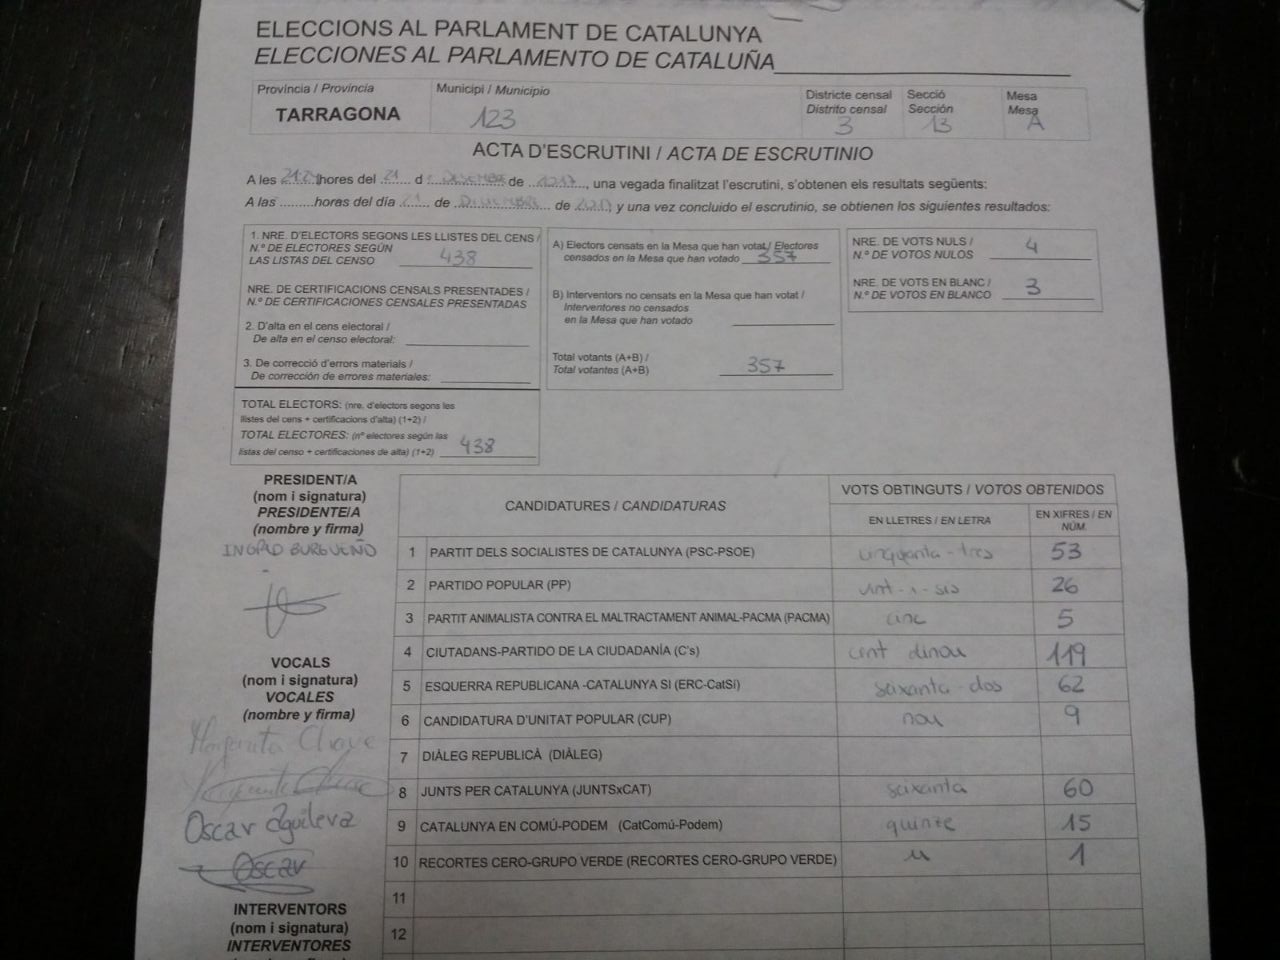 ELECCIONS AL PARLAMENT DE CATALUNYA
ELECCIONES AL PARLAMENTO DE CATALUÑA
Província / Provincia
TARRAGONA
Municipi / Municipio
123
Districte censal
Distrito censal
3
Secció
Sección
13
Mesa
Mesa
A
ACTA D'ESCRUTINI / ACTA DE ESCRUTINIO
A les hores del 21 d DESEMBRE de 2017, una vegada finalitzat l'escrutini, s'obtenen els resultats següents:
A las ..........horas del día de de y una vez concluido el escrutinio, se obtienen los siguientes resultados:
1. NRE. D'ELECTORS SEGONS LES LLISTES DEL CENS /
N.º DE ELECTORES SEGÚN
LAS LISTAS DEL CENSO 438
NRE. DE CERTIFICACIONS CENSALS PRESENTADES /
N.º DE CERTIFICACIONES CENSALES PRESENTADAS
2. D'alta en el cens electoral /
De alta en el censo electoral:
3. De correcció d'errors materials /
De corrección de errores materiales:
TOTAL ELECTORS: (nre. d'electors segons les
llistes del cens + certificacions d'alta) (1+2) /
TOTAL ELECTORES: (nº electores según las
listas del censo + certificaciones de alta) (1+2) 438
A) Electors censats en la Mesa que han votat / Electores
censados en la Mesa que han votado 357
B) Interventors no censats en la Mesa que han votat /
Interventores no censados
en la Mesa que han votado
Total votants (A+B) /
Total votantes (A+B) 357
NRE. DE VOTS NULS /
N.º DE VOTOS NULOS 4
NRE. DE VOTS EN BLANC /
N.º DE VOTOS EN BLANCO 3
PRESIDENT/A
(nom i signatura)
PRESIDENTE/A
(nombre y firma)
INGRID BURGUEÑO
VOCALS
(nom i signatura)
VOCALES
(nombre y firma)
Margarita Chave
Oscar Aguilera
Oscar
INTERVENTORS
(nom i signatura)
INTERVENTORES
CANDIDATURES / CANDIDATURAS
VOTS OBTINGUTS / VOTOS OBTENIDOS
EN LLETRES / EN LETRA
EN XIFRES / EN NÚM.
1 PARTIT DELS SOCIALISTES DE CATALUNYA (PSC-PSOE) cinquanta-tres 53
2 PARTIDO POPULAR (PP) vint-i-sis 26
3 PARTIT ANIMALISTA CONTRA EL MALTRACTAMENT ANIMAL-PACMA (PACMA) cinc 5
4 CIUTADANS-PARTIDO DE LA CIUDADANÍA (C's) cent dinou 119
5 ESQUERRA REPUBLICANA -CATALUNYA SI (ERC-CatSí) seixanta-dos 62
6 CANDIDATURA D'UNITAT POPULAR (CUP) nou 9
7 DIÀLEG REPUBLICÀ (DIÀLEG)
8 JUNTS PER CATALUNYA (JUNTSxCAT) seixanta 60
9 CATALUNYA EN COMÚ-PODEM (CatComú-Podem) quinze 15
10 RECORTES CERO-GRUPO VERDE (RECORTES CERO-GRUPO VERDE) u 1
11
12